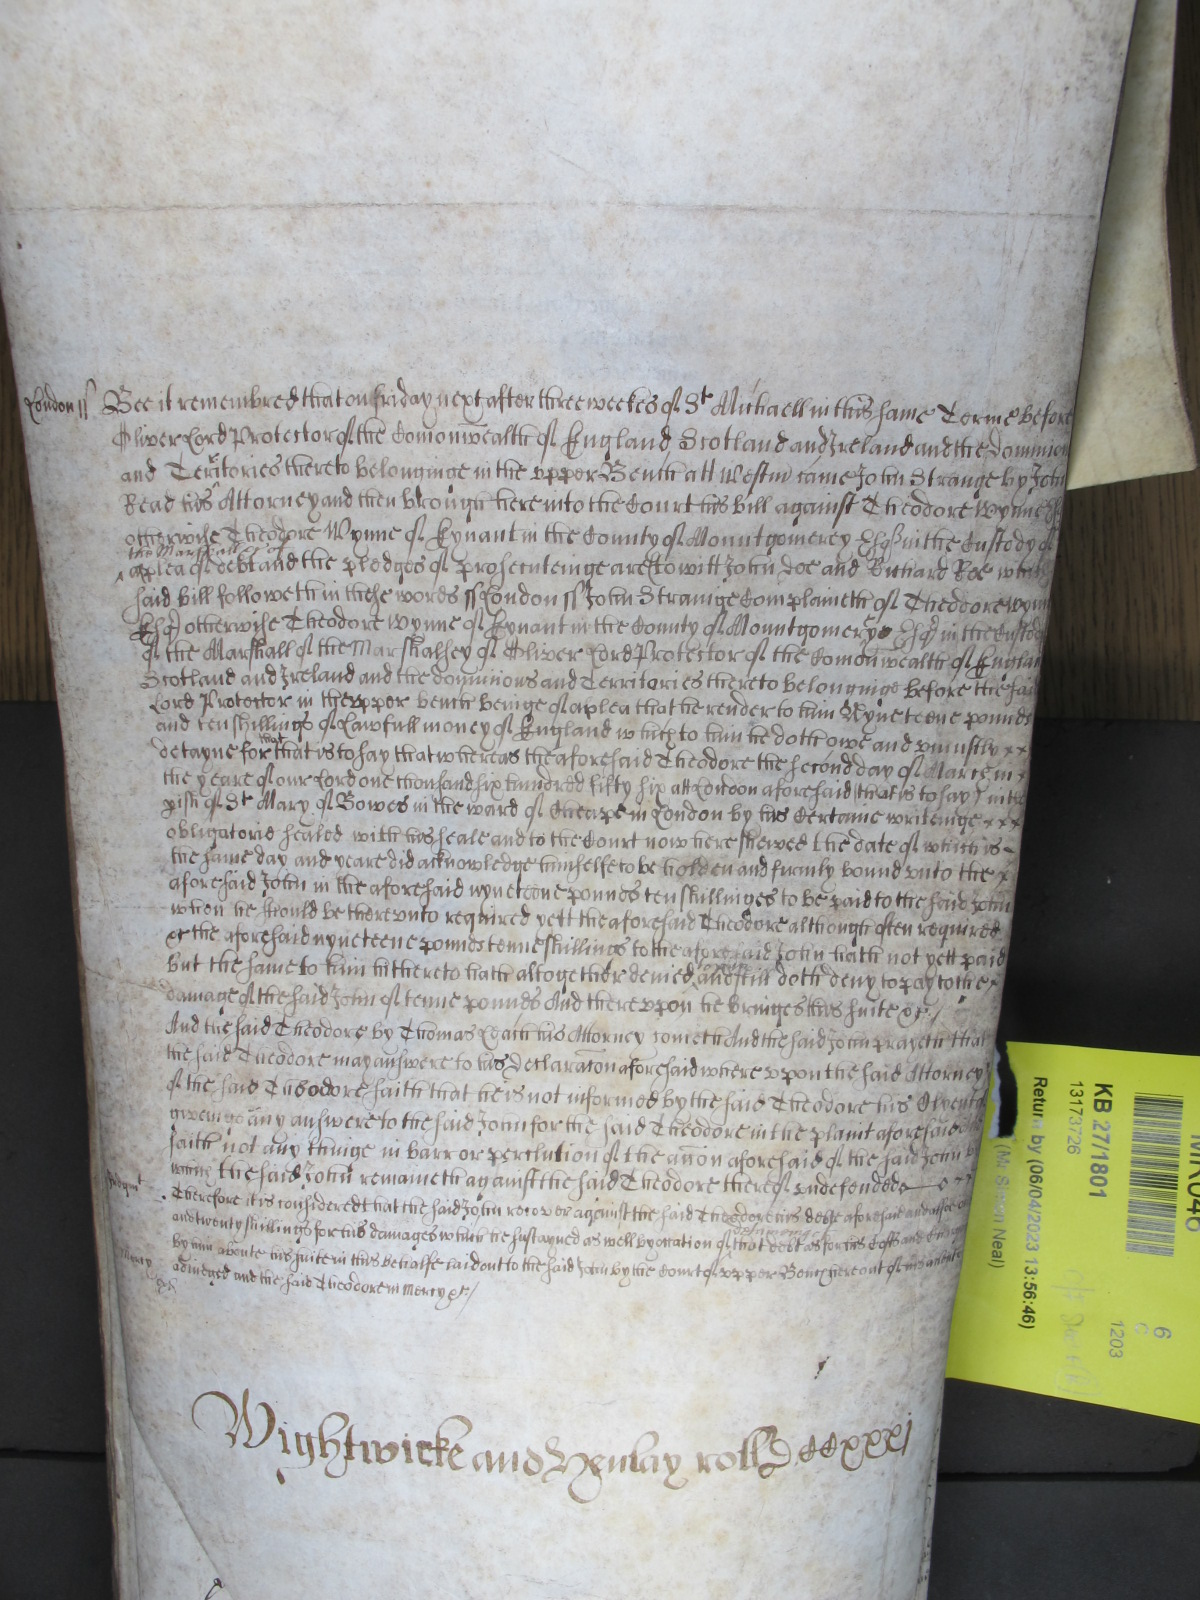 London ss Bee it remembred that on friday next after three weekes of St Michaell in this same Terme before
Oliver Lord Protector of the Comonwealth of England Scotland and Ireland and the Dominions
and Territories thereto belonginge in the vpper Bench att Westm came John Strange by John
Read his Attorney and then brought here into the Court his bill against Theodore Wynne Esq
otherwise Theodore Wynne of Kynant in the County of Mountgomerey Esqr in the Custody of
the Marshall &c of
a plea of debt and the pledges of prosecuteinge are to witt John Doe and Richard Roe which
said bill followeth in these words ss London ss John Strainge Complaineth of Theodore Wynne
Esq otherwise Theodore Wynne of Kynant in the County of Mountgomerye Esq in the Custody
of the Marshall of the Marshalsey of Oliver Lord Protector of the Comonwealth of England
Scotland and Ireland and the dominions and Territories thereto belonginge before the said
Lord Protector in the vpper bench beinge of a plea that he render to him Nyneteene pounds
and ten shillings of Lawfull money of England which to him he doth owe and vniustly
detayne for that that is to say that whereas the aforesaid Theodore the second day of March in
the yeare of our Lord one thousand six hundred fifty six att London aforesaid (that is to say) in the
pish of St Mary of Bowes in the ward of Cheape in London by his Certaine writeinge
obligatorie sealed with his seale and to the Court now here shewed the date of which is
the same day and yeare did acknowledge himselfe to be holden and firmly bound vnto the
aforesaid John in the aforesaid nyneteene pounds ten shillinges to be paid to the said John
when he should be therevnto required yett the aforesaid Theodore although often required
&c the aforesaid nyneteene pounds tenne shillings to the aforesaid John hath not yett paid
but the same to him hitherto hath altogether denied and still doth deny to pay to the
damage of the said John of tenne pounds And therevpon he bringes his suite &c
And the said Theodore by Thomas his Attorney cometh And the said John prayeth that
the said Theodore may answere to his Declaraton aforesaid wherevpon the said Attorney
of the said Theodore saith that he is not informed by the said Theodore his
giveinge any answere to the said John for the said Theodore in the plaint aforesaid
saith not any thinge in barr or perclution of the acton aforesaid of the said John
which the said John remaineth against the said Theodore thereof vndefended
Judgmt Therefore it is considered that the said John recover against the said Theodore his debt aforesaid and alsoe
and twenty shillings for his damages which he sustayned as well by occation of the detaininge of that debt as for his Costs and Charges
by him aboute his suite in this behalfe laid out to the said John by the Court of vpper Bench here out of his assent
Mercy adiudged and the said Theodore in Mercy &c
Wightwicke and Henlay roll CCxxxj
KB 27/1801
13173726
Return by (06/04/2023 13:56:46)
6
C
1203